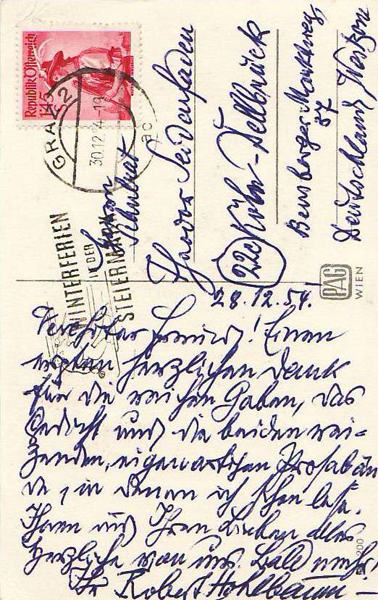 Republik Österreich
1.45
GRAZ 2
30.12.54-19
WINTERFERIEN
IN DER
STEIERMARK
Herrn
Theodor Seidenfaden
(22c) Köln-Dellbrück
Bensberger Marktweg,
37
Deutschland, Westzone
PAG
WIEN
28.12.54.
Verehrter Freund! Einen
ersten herzlichen Dank
für die reichen Gaben, das
Gedicht und die beiden rei-
zenden, eigenartigen Prosabän
de, in denen ich schon lese.
Ihnen und Ihren Lieben alles
Herzliche von uns. Bald mehr!
Ihr Robert Hohlbaum